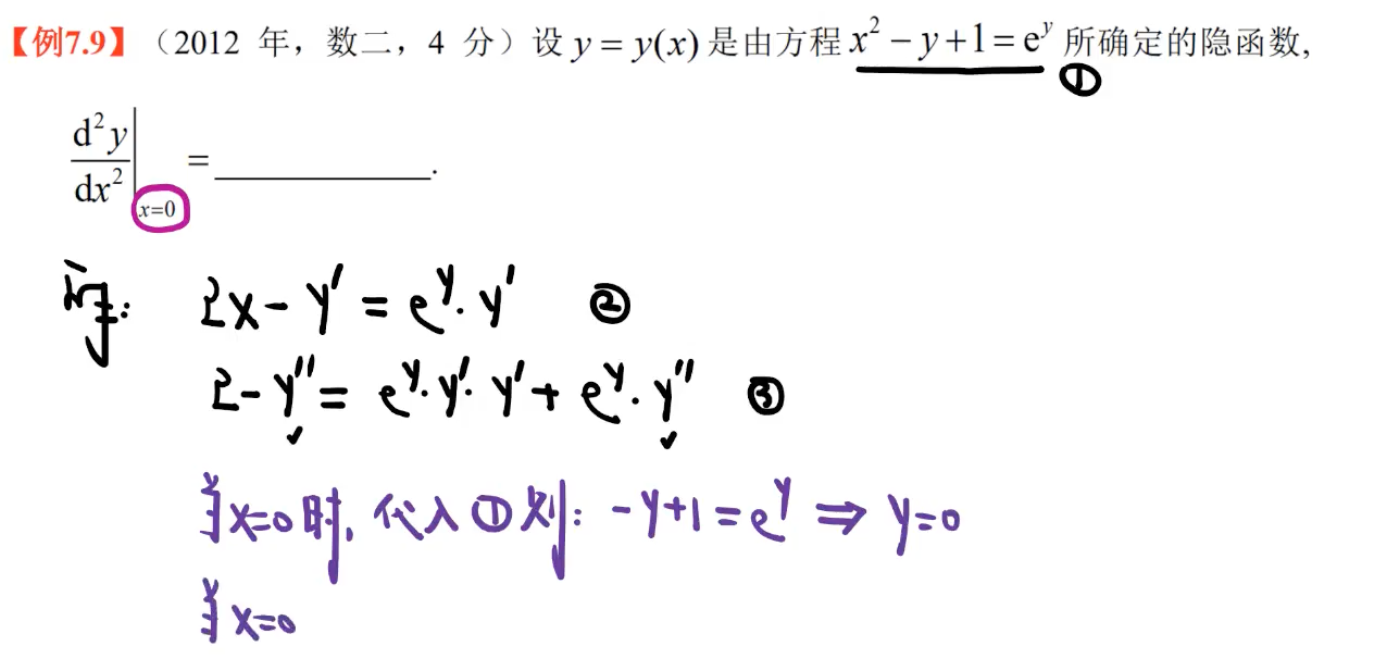 【例7.9】（2012 年，数二，4 分）设 y = y(x) 是由方程 x² − y + 1 = eʸ 所确定的隐函数,
①
d²y/dx² |x=0 = ________.
解: 2x − y′ = eʸ · y′ ②
2 − y″ = eʸ · y′ · y′ + eʸ · y″ ③
当x=0时, 代入①则: −y+1 = eʸ ⇒ y=0
当x=0